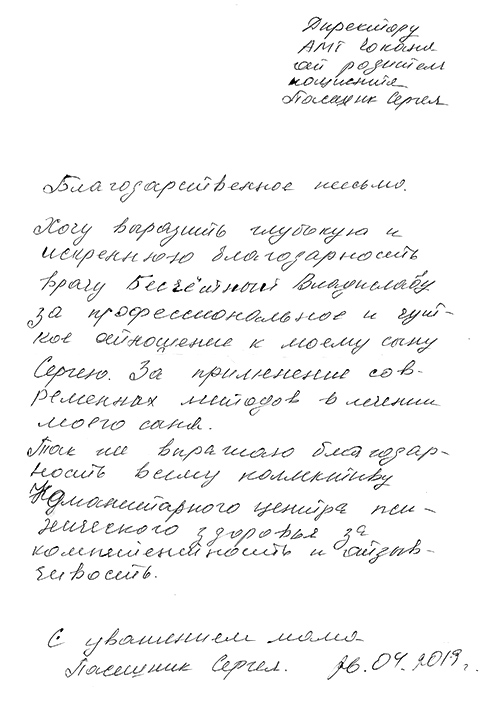 Директору
от родителя
пациента
Пасечник Сергея
Благодарственное письмо.
Хочу выразить глубокую и
искреннюю благодарность
врачу Бесчётный Владиславу
за профессиональное и чут-
кое отношение к моему сыну
Сергею. За применение сов-
ременных методов в лечении
моего сына.
Так же выражаю благодар-
ность всему коллективу
центра пси-
хического здоровья за
компетентность и отзыв-
чивость.
С уважением мама
Пасечник Сергея. 26.04.2019г.